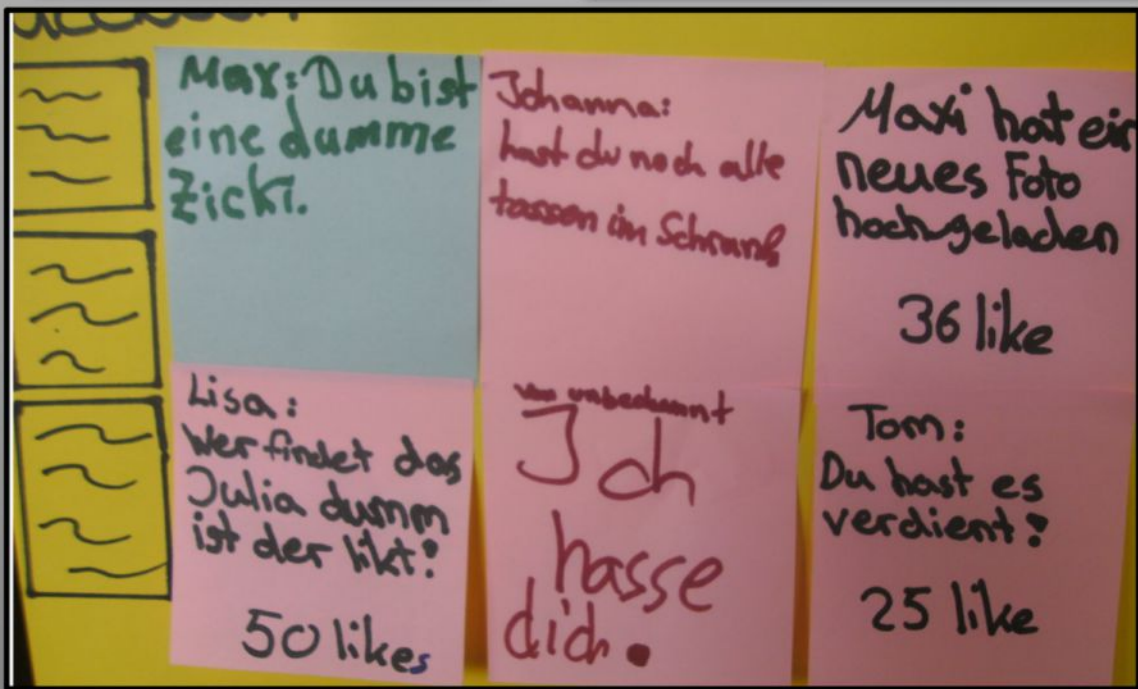 Max: Du bist
eine dumme
Zicki.
Johanna:
hast du noch alle
tassen im Schrank
Maxi hat ein
neues Foto
hochgeladen
36 like
Lisa:
Wer findet das
Julia dumm
ist der likt!
50 likes
von unbekannt
Ich
hasse
dich.
Tom:
Du hast es
verdient!
25 like